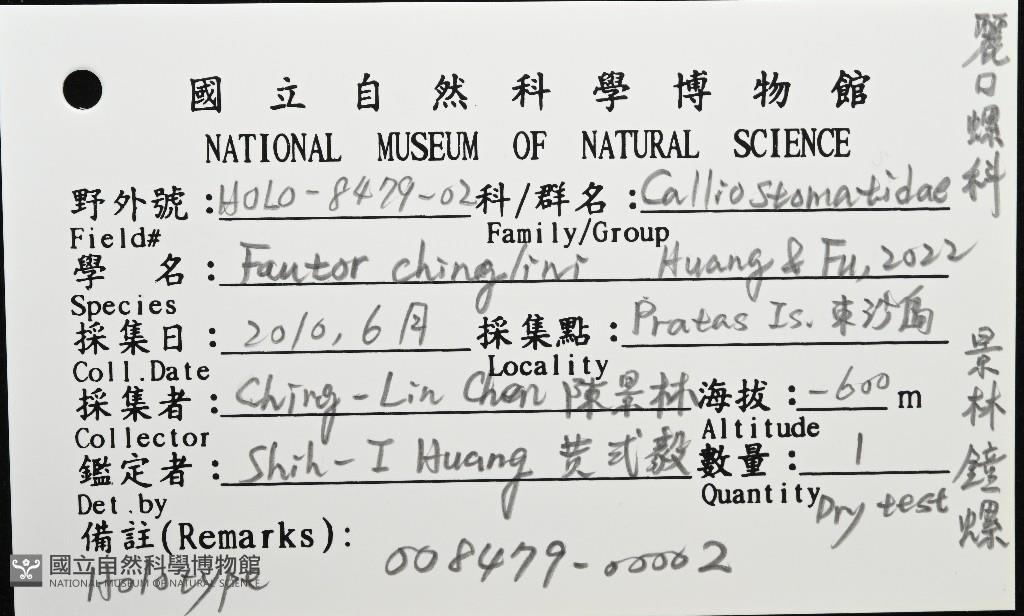 國立自然科學博物館
NATIONAL MUSEUM OF NATURAL SCIENCE
野外號：HOLO-8479-02 科/群名：Calliostomatidae
Field# Family/Group
學 名：Fautor chinglini Huang & Fu, 2022
Species
採集日：2010, 6月 採集點：Pratas Is. 東沙島
Coll.Date Locality
採集者：Ching-Lin Chen 陳景林 海拔：-600 m
Collector Altitude
鑑定者：Shih-I Huang 黄式毅 數量：1
Det.by Quantity Dry test
備註(Remarks): 008479-00002
Holotype
國立自然科學博物館
NATIONAL MUSEUM OF NATURAL SCIENCE
麗口螺科
景林鐘螺